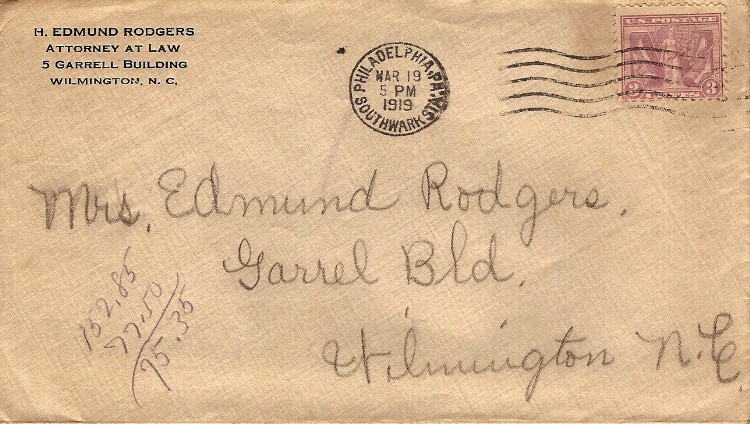 H. EDMUND RODGERS
ATTORNEY AT LAW
5 GARRELL BUILDING
WILMINGTON, N. C.
PHILADELPHIA, PA.
MAR 19
5 PM
1919
SOUTHWARK STA.
U.S. POSTAGE
3 3
Mrs. Edmund Rodgers.
Garrel Bld.
Wilmington N.C
152.85
77.50
75.35